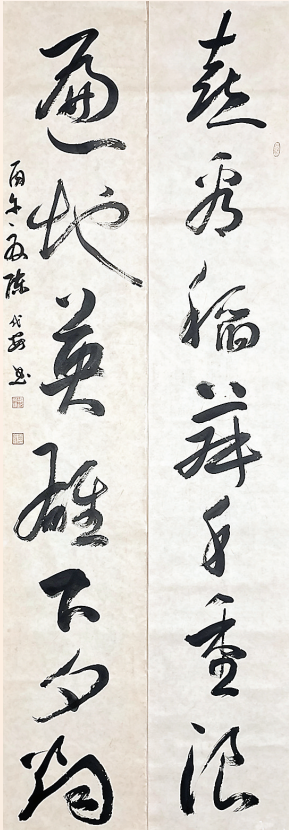 喜看稻菽千重浪
遍地英雄下夕烟
丙午夏陈